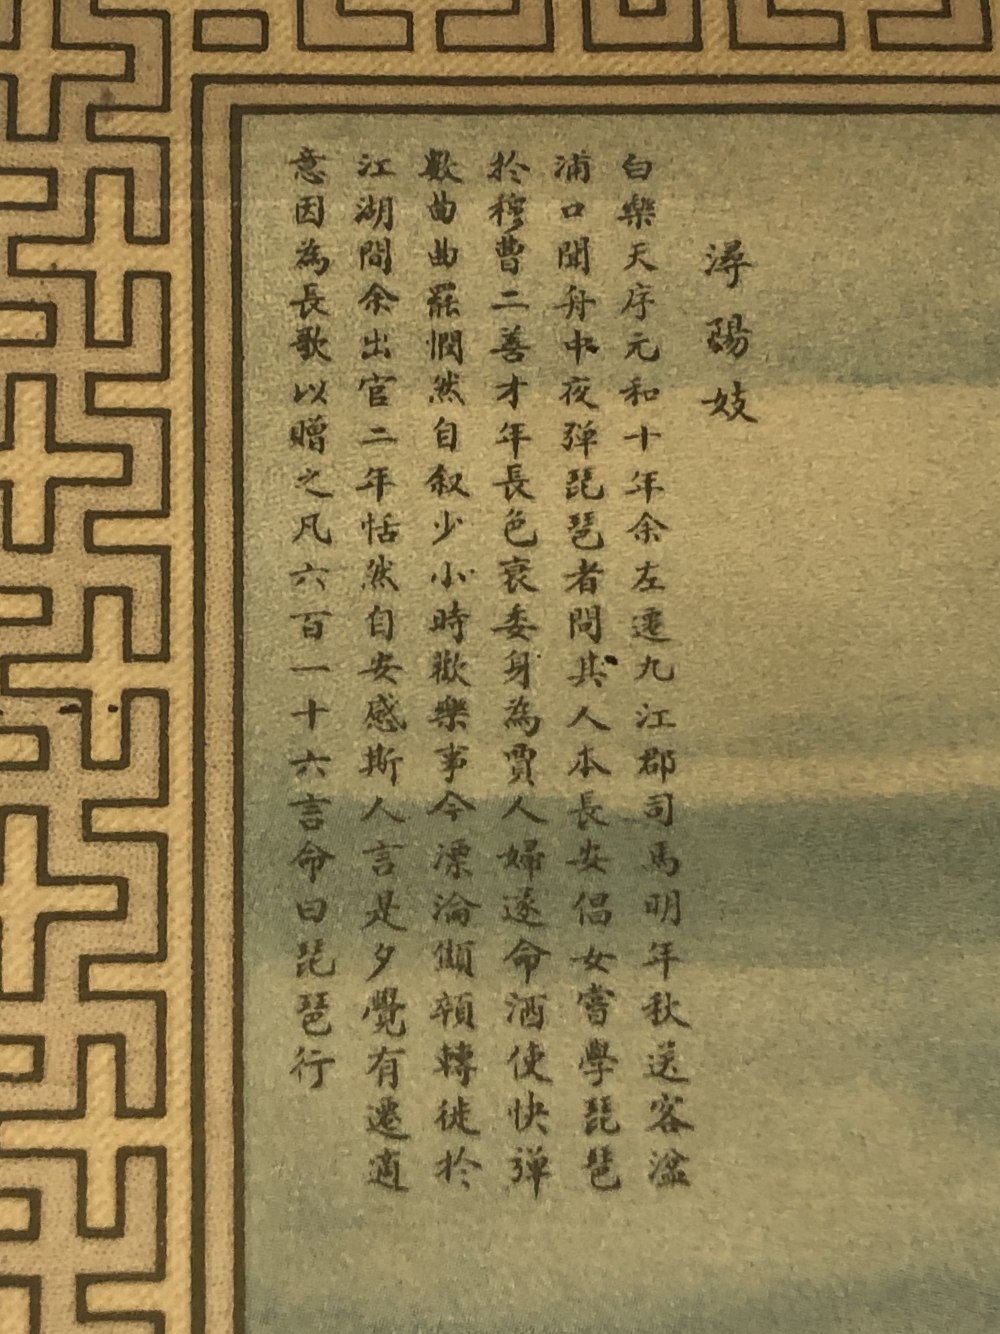 潯陽妓
白樂天序元和十年余左遷九江郡司馬明年秋送客湓
浦口聞舟中夜弾琵琶者問其人本長安倡女嘗學琵琶
於穆曹二善才年長色衰委身為賈人婦遂命酒使快弾
數曲曲罷憫然自叙少小時歡樂事今漂淪顦顇轉徙於
江湖間余出官二年恬然自安感斯人言是夕覺有遷適
意因為長歌以贈之凡六百一十六言命曰琵琶行